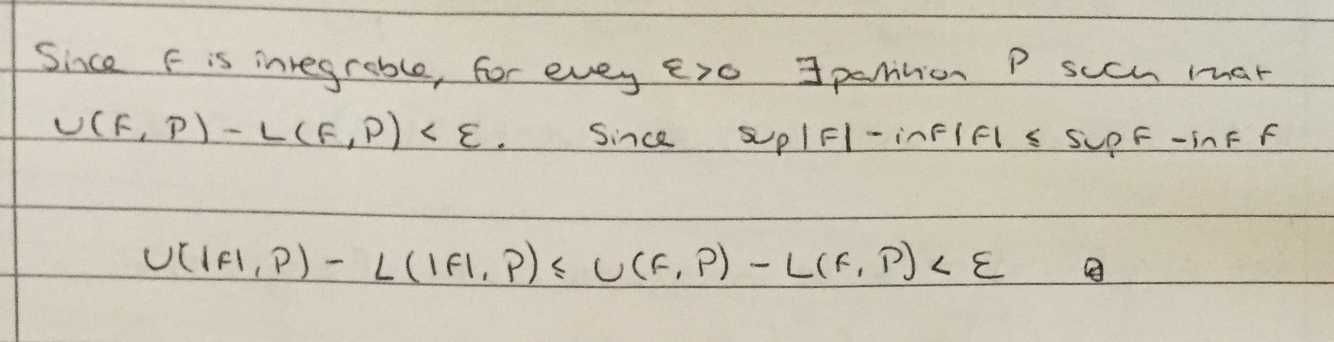 Since f is integrable, for every ε>0 ∃ partition P such that
U(f, P) - L(f, P) < ε. Since sup|f| - inf|f| ≤ sup f - inf f
U(|f|, P) - L(|f|, P) ≤ U(f, P) - L(f, P) < ε